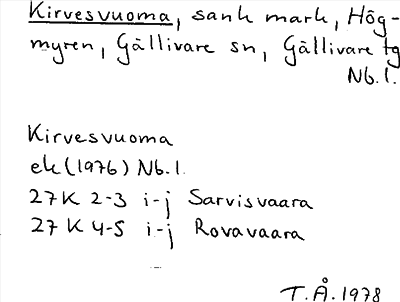 Kirvesvuoma, sank mark, Hög-
myren, Gällivare sn, Gällivare tg
Nb.l.
Kirvesvuoma
ek (1976) Nb.l.
27K 2-3 i-j Sarvisvaara
27K 4-5 i-j Rovavaara
T.Å.1978